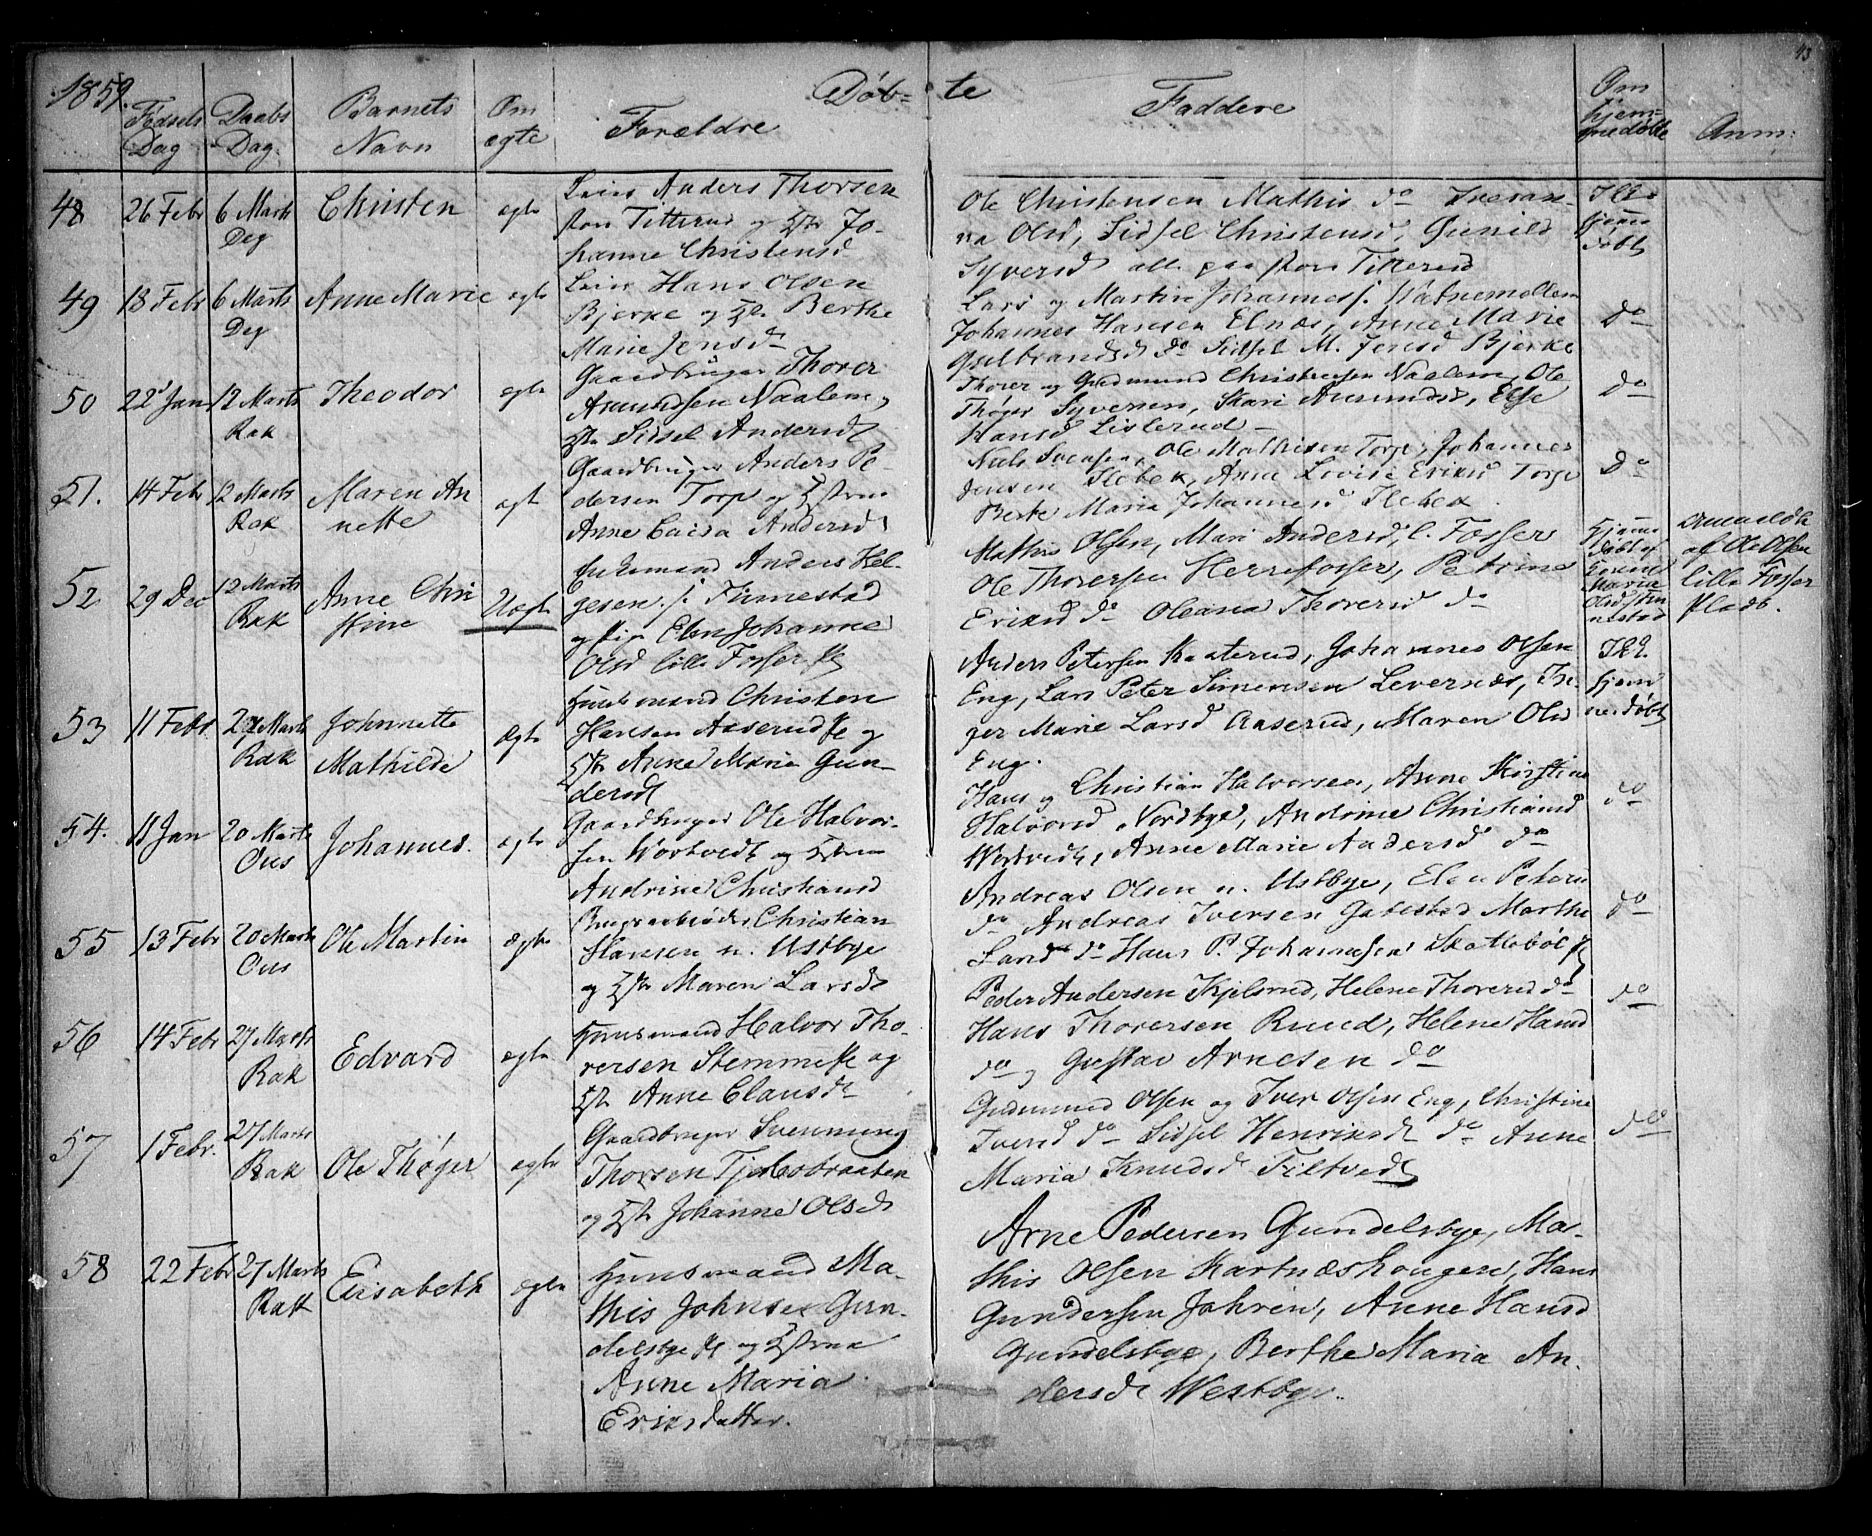 1859.
Døb- te
43
Fødsels Dag
Daabs Dag
Barnets Navn
Om ægte
Forældre
Faddere
Om hjemmedøbt
Anm:
48
26 Febr
6 Marts
Christen
ægte
Leier Anders Thorsen
Titterud og Johanne Christensd
Ole Christensen Mathis do
na Olsd, Sidsel Christensd, Gunild
Syversd alle paa Titterud
hjemmedøbt
49
18 Febr
6 Marts
Anne Marie
ægte
Leier Hans Olsen
Bjerke og Berthe
Marie Jensd
Lars og Martin Johanness.
Johannes Hansen Elnæs, Anne Marie
Gulbrandsd do Sidsel M. Jensd Bjerke
do
50
22 Jan
12 Marts
Rak
Theodor
ægte
Gaardbruger Thorer
Amundsen Naalem
Sidsel Andersd
Thorer og Gudmund Christensen Naalem, Ole
Thøger Syversen, Kari Amundsd, Else
Hansd Lislerud
do
51.
14 Febr
12 Marts
Rak
Maren Annette
ægt
Gaardbruger Anders Pedersen
Torp og
Anne Andersd
Niels Svensen, Ole Mathisen Torp, Johannes
Jensen Slebek, Anne Lovise Eriksd Torp
Berte Maria Johannesd Slebek
do
52
29 Dec
12 Marts
Rak
Anne Christine
Uægt
Enkemand Anders Helgesen
Finnestad
og Pige Elen Johanne
Olsd lille Fosser
Mathis Olsen, Mari Andersd, l. Fosser
Ole Thoversen Herrefosser, Petrine
Eriksd do Oleana Thoversd do
Hjemmedøbt af
Maria
Olsd Finnestad
af Ole Olsen
lille Fosser
53
11 Febr
Marts
Rak
Johnnette
Mathilde
Ægte
Huusmand Christen
Hansen Aaserud og
Anne Maria Gundersd
Anders Petersen Kaaterud, Johannes Olsen
Eng, Lars Peter Simensen Levernæs, Inger
Marie Larsd Aaserud, Maren Olsd
Eng.
hjemmedøbt
54.
11 Jan
20 Marts
Ous
Johannes.
ægte
Gaardbruger Ole Halvorsen
Wortvedt og
Andrine Christiansd
Hans og Christian Halvorsen, Anne Kirstine
Halvorsd Nordbye, Andrine Christiansd
Wortvedt, Anne Marie Andersd do
do
55
13 Febr
20 Marts
Ous
Ole Martin
ægte
Christian
Hansen n. Ustbye
og Maren Larsd
Andreas Olsen n. Ustbye, Elen Petern
do Andreas Iversen Gabestad Marthe
Larsd do Hans P. Johannesen Skattebøl
do
56
14 Febr
27 Marts
Rak
Edvard
ægte
Huusmand Halvor Thoversen
Stemme og
Anne Clausd
Peder Andersen Kjelsrud, Helene Thoversd do
Hans Thoversen Ruud, Helene Hansd
do og Gustav Arnesen do
do
57
1 Febr.
27 Marts
Rak
Ole Thøger
ægte
Gaardbruger Svenning
Thorsen
og Johanne Olsd
Gudmund Olsen og Iver Olsen Eng, Christine
Iversd do Sidsel Henriksd do Anne
Maria Knudsd Filtvedt
do
58
22 Febr
27 Marts
Rak
Elisabeth
ægte
Huusmand Mathis
Johnsen Gundelsbye
og
Anne Maria
Eriksdatter.
Arne Pedersen Gundelsbye, Mathis
Olsen Kartnæshougen, Hans
Gundersen Johren, Anne Hansd
Gundelsbye, Berthe Maria Andersd
Westbye.